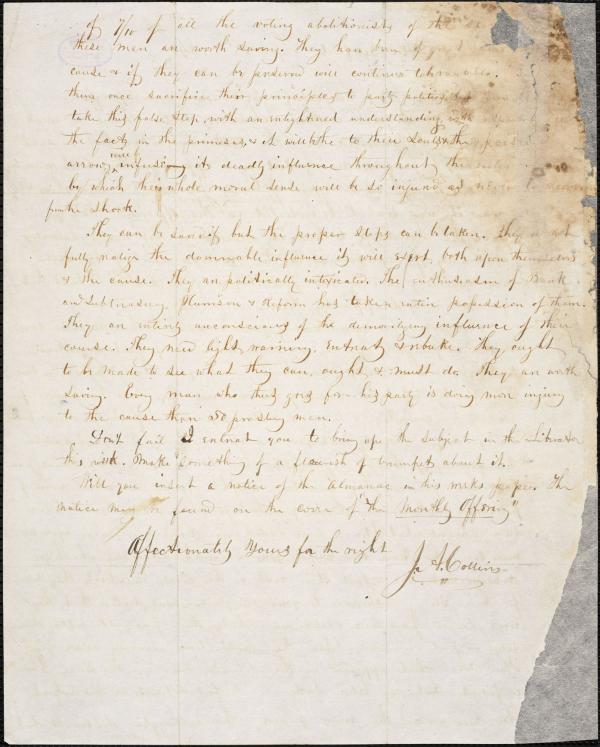 of 7/10 of all the voting abolitionists of the
these men are worth saving. They have been of great
cause & if they can be preserved will continue
them once sacrifice their principles to party politics
take this false step, with an enlightened understanding
the facts in the premises, & it will be to their souls
arrow, will infusing its deadly influence throughout the
by which their whole moral sense will be so injured as never to recover
from the shock.
They can be saved if but the proper steps can be taken. They do not
fully realize the damnable influence it will exert, both upon themselves
& the cause. They are politically intoxicated. The enthusiasm of Bank
and Subtreasury, Harrison & Reform has taken entire possession of them.
They are entirely unconscious of the demoralizing influence of their
course. They need light, warning, entreaty & rebuke. They ought
to be made to see what they can, ought, & must do. They are worth
saving. Every man who thus goes for his party is doing more injury
to the cause than 20 proslavery men.
Dont fail I entreat you to bring up the subject in the Liberator
this week. Make something of a flourish of trumpets about it.
Will you insert a notice of the Almanac in this weeks paper. The
notice may be found on the cover of "the Monthly Offering"
Affectionately Yours for the right
J. A. Collins